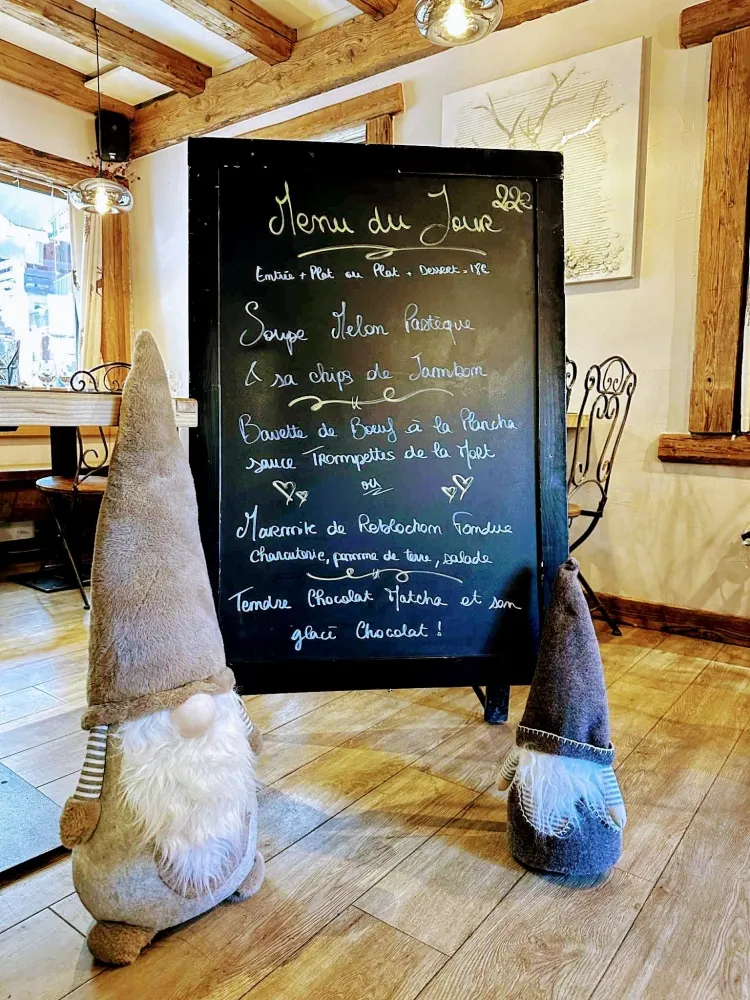 Menu du Jour 22€
Entrée + Plat ou Plat + Dessert = 18€
Soupe Melon Pastèque
& sa chips de Jambon
Bavette de Boeuf à la Plancha
sauce Trompettes de la Mort
ou
Marmite de Reblochon Fondue
Charcuterie, pomme de terre, salade
Tendre Chocolat Matcha et son
glacé Chocolat !